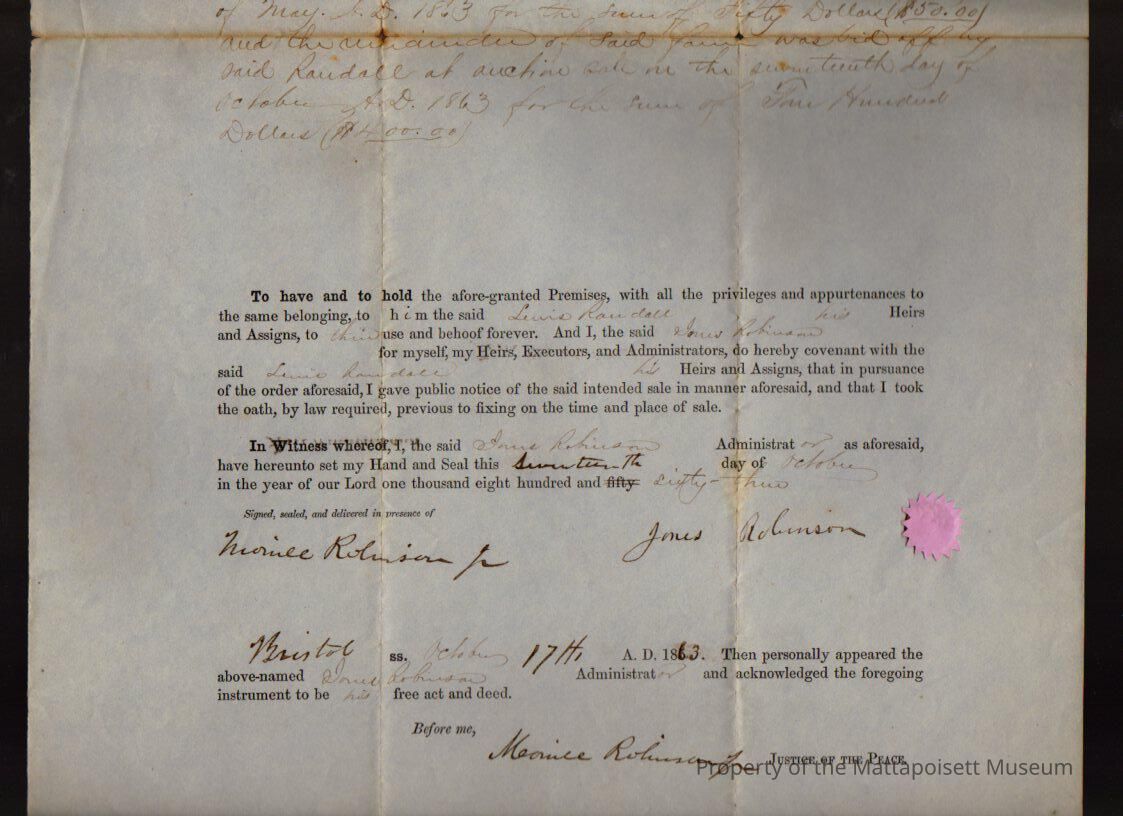 of May. A. D. 1863 for the sum of Fifty Dollars ($50.00)
and the remainder of said farm was bid off by
said Randall at auction sale on the seventeenth day of
October A. D. 1863 for the sum of Four Hundred
Dollars ($400.00)
To have and to hold the afore-granted Premises, with all the privileges and appurtenances to
the same belonging, to him the said Lewis Randall his Heirs
and Assigns, to their use and behoof forever. And I, the said Jones Robinson
for myself, my Heirs, Executors, and Administrators, do hereby covenant with the
said Lewis Randall his Heirs and Assigns, that in pursuance
of the order aforesaid, I gave public notice of the said intended sale in manner aforesaid, and that I took
the oath, by law required, previous to fixing on the time and place of sale.
In Witness whereof, I, the said Jones Robinson Administrator as aforesaid,
have hereunto set my Hand and Seal this Seventeenth day of October
in the year of our Lord one thousand eight hundred and fifty sixty-three
Signed, sealed, and delivered in presence of
Robinson Jr Jones Robinson
Bristol ss. October 17th A. D. 1863. Then personally appeared the
above-named Jones Robinson Administrator and acknowledged the foregoing
instrument to be his free act and deed.
Before me,
Robinson Jr JUSTICE OF THE PEACE.
Property of the Mattapoisett Museum